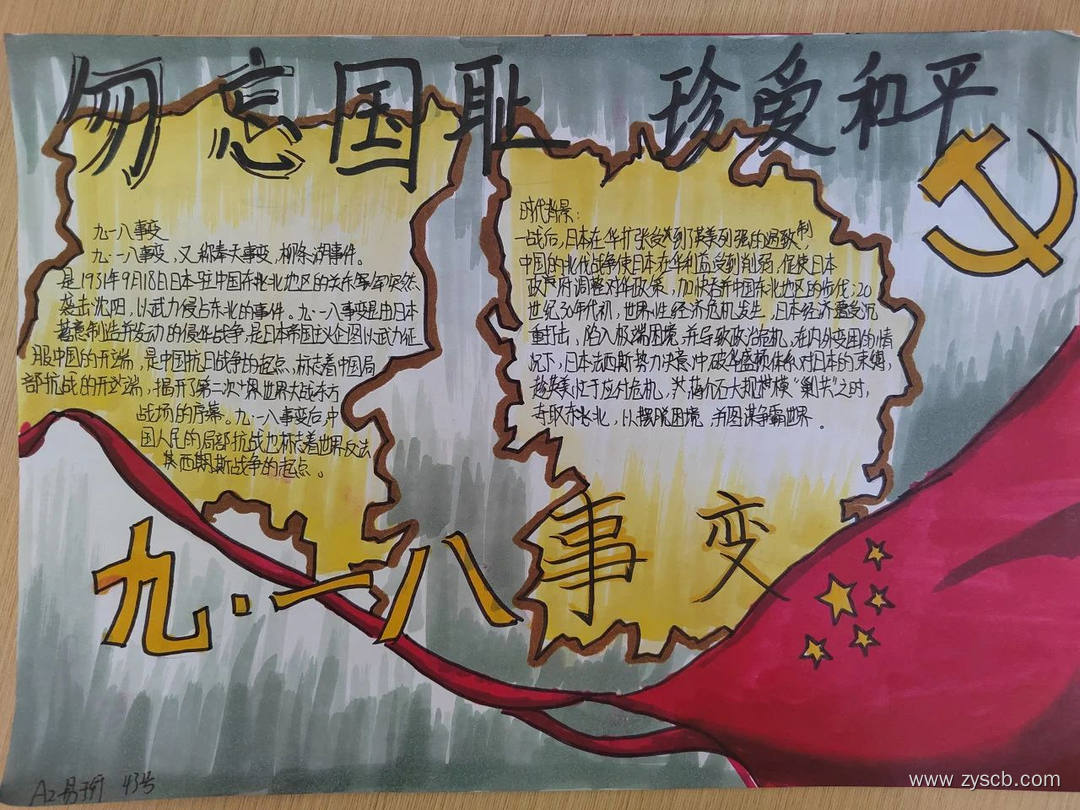 勿忘国耻 珍爱和平
九·一八事变
九·一八事变，又称奉天事变，柳条湖事件。
是1931年9月18日日本驻中国东北地区的关东军突然
袭击沈阳，以武力侵占东北的事件。九·一八事变是由日本
蓄意制造并发动的侵华战争，是日本帝国主义企图以武力征
服中国的开端，是中国抗日战争的起点，标志着中国局
部抗战的开始，揭开了第二次世界大战东方
战场的序幕。九·一八事变后，中
国人民的局部抗战也标志着世界反法
西斯战争的起点。
时代背景：
一战后，日本在华扩张受到了英美列强的遏制，
中国的北伐战争使日本在华利益受到削弱，促使日本
政府调整对华政策，加快吞并中国东北地区的步伐；20
世纪30年代初，世界性经济危机发生，日本经济遭受沉
重打击，陷入极端困境，并导致政治危机。在内外交困的情
况下，日本法西斯势力决意冲破华盛顿体系对日本的束缚，
趁英美忙于应付危机，蒋介石大规模“剿共”之时，
夺取东北，以摆脱困境，并图谋争霸世界。
九·一八
事变
43号
www.zyscb.com